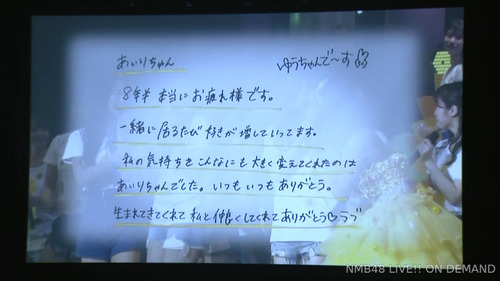 あいりちゃん
ゆうちゃんで〜す
8年半 本当にお疲れ様です。
一緒に居るたび 好きが増していってます。
私の気持ちをこんなにも大きく変えてくれたのは
あいりちゃんでした。いつもいつもありがとう。
生まれてきてくれて 私と仲良くしてくれてありがとう♡ラブ
NMB48 LIVE!! ON DEMAND